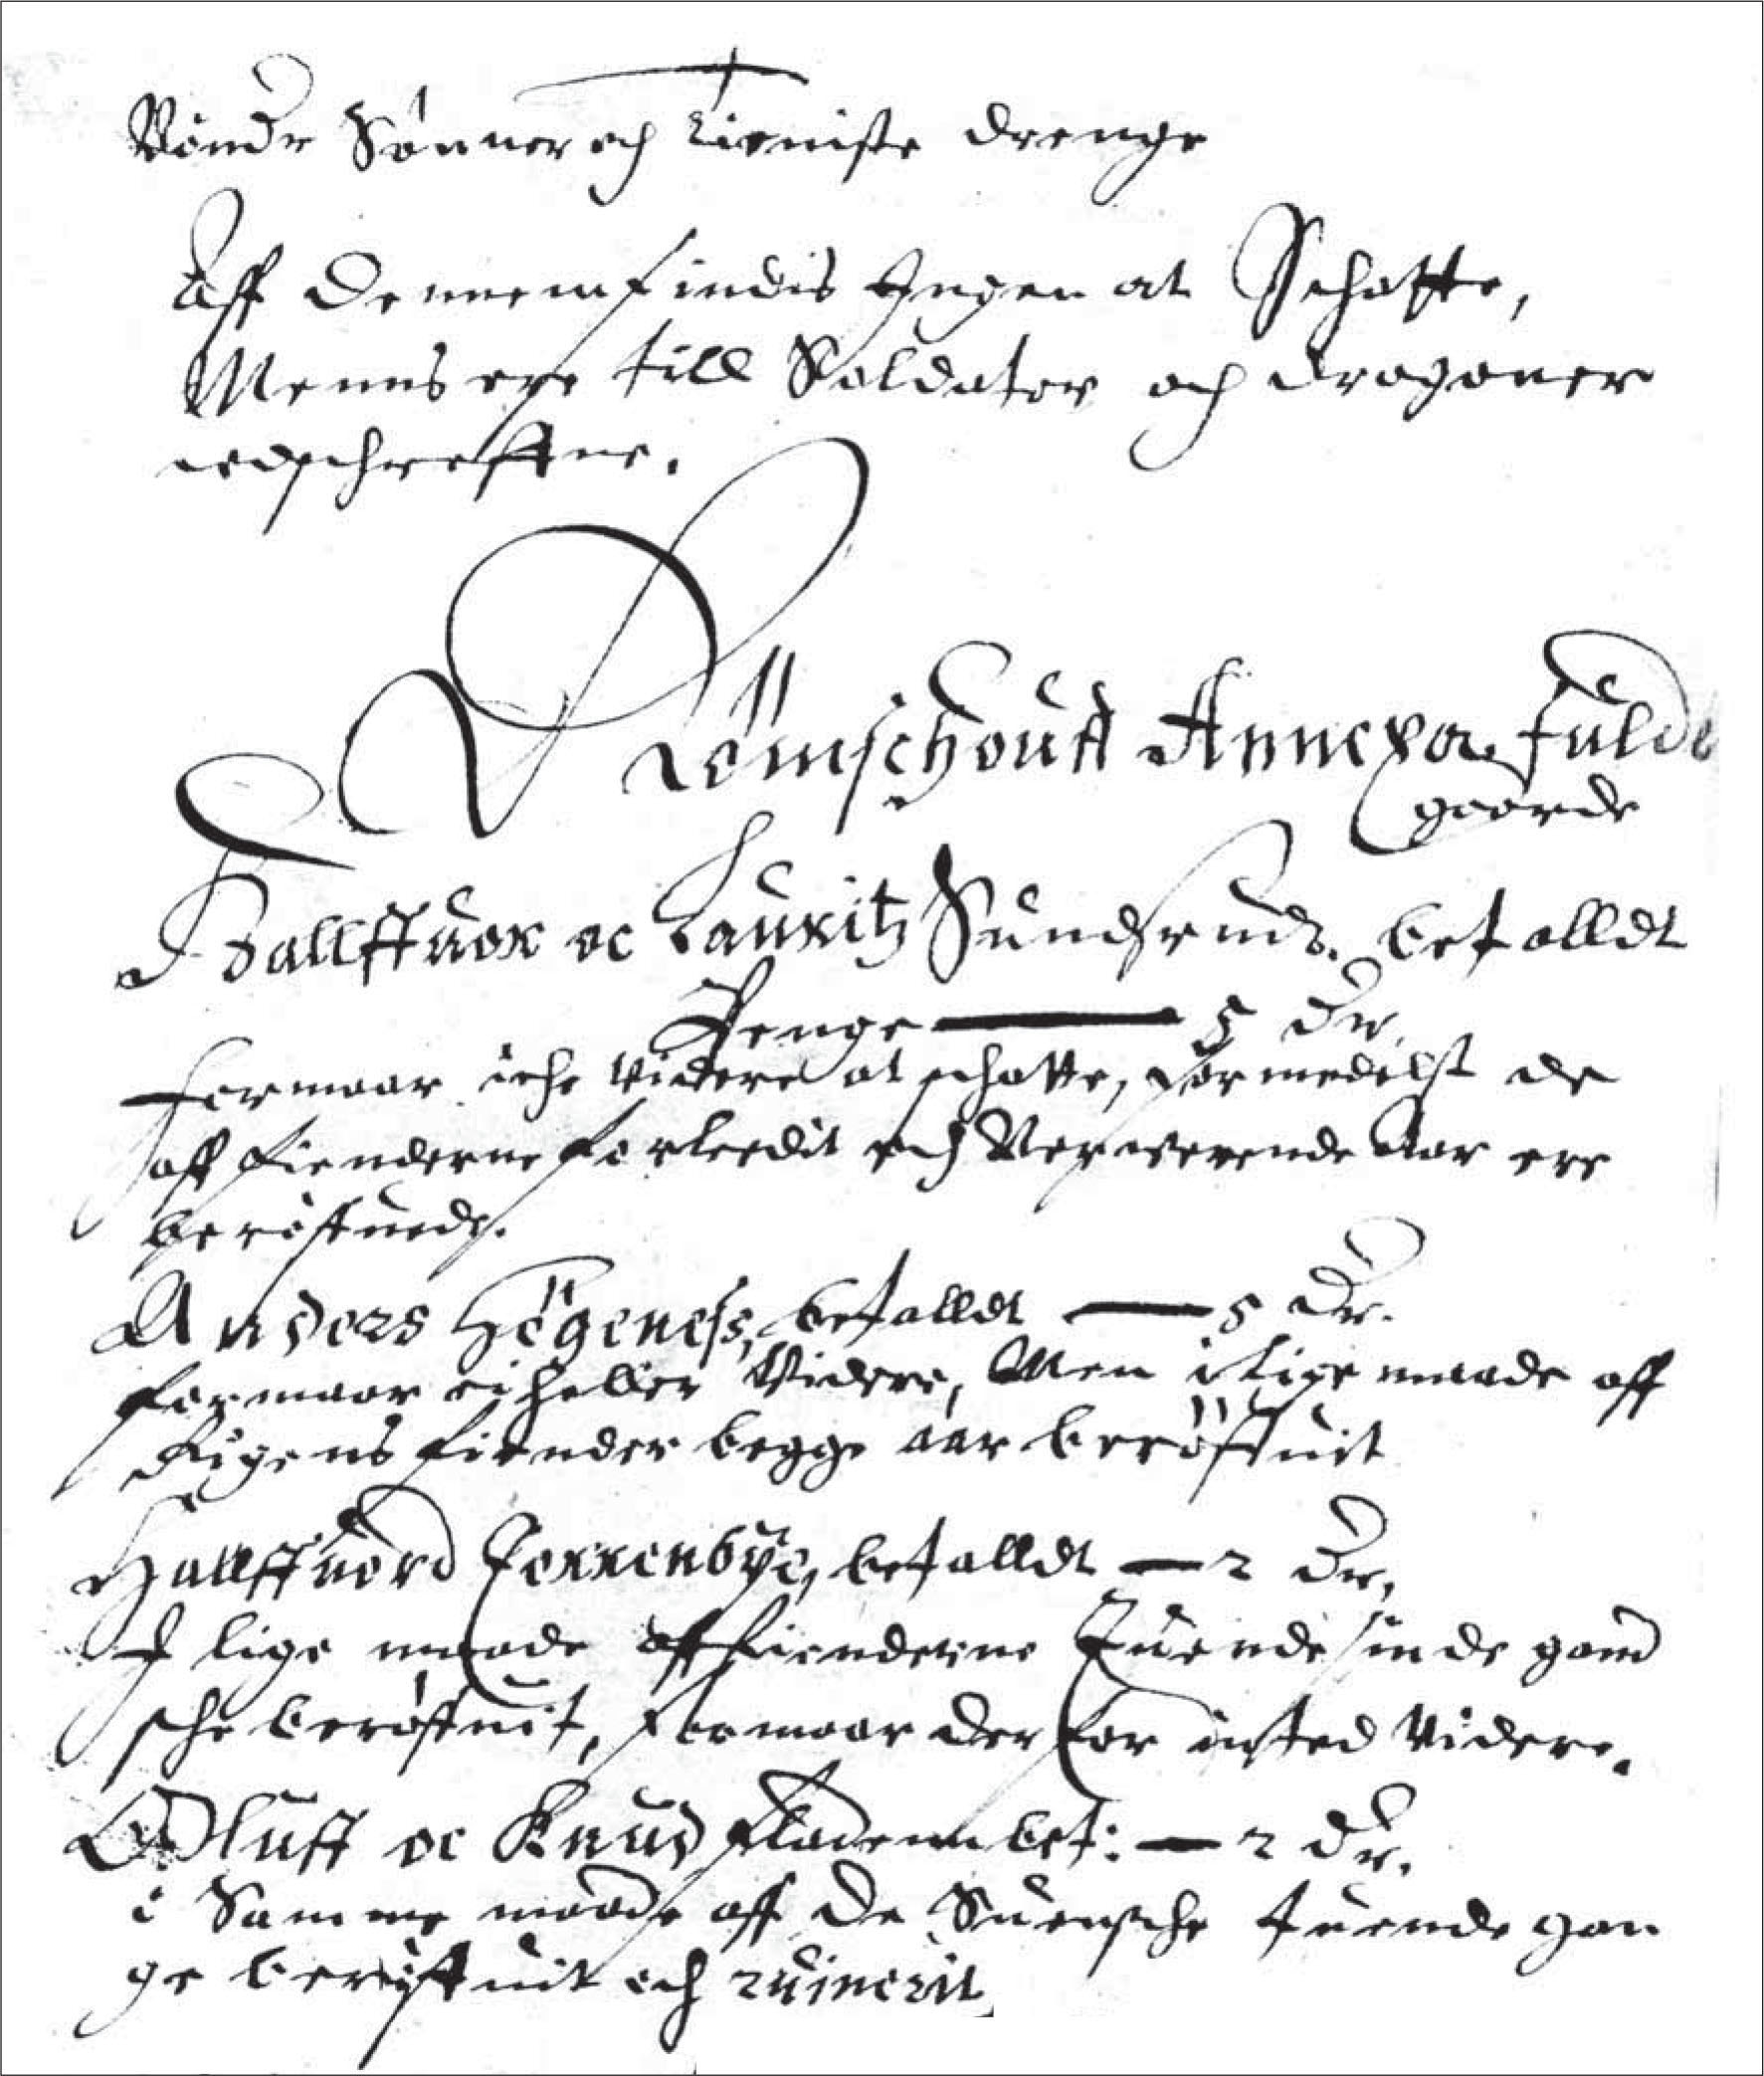 Bönder Sønner och Tieniste drenge
Aff dennem findis Ingen at Schatte,
Menns ere till Soldater och dragoner
udschreffne.
Römschoug Annexa fulde
gaarde
Hallffuor oc Lauritz Sundsrudt. betalldt
Penge — 5 Dr.
formaar iche videre at schatte, formedelst de
aff fienderne forleedit och Nerverende Aar ere
beröffuede.
Anders Högeness, betalldt — 5 Dr.
formaar ei heller Videre, Men i lige maade aff
Rigens fiender begge aar beröffuit
Hallffuord Jerrenbye, betalldt — 2 Dr.
I lige maade aff fienderne Tuende sinde gand
sche beröffuit, formaar der for inted Videre.
Oluff oc Knud fladenn bet: — 2 Dr.
i Samme maade aff de Suensche tuende gan
ge beröffuit och ruinerit